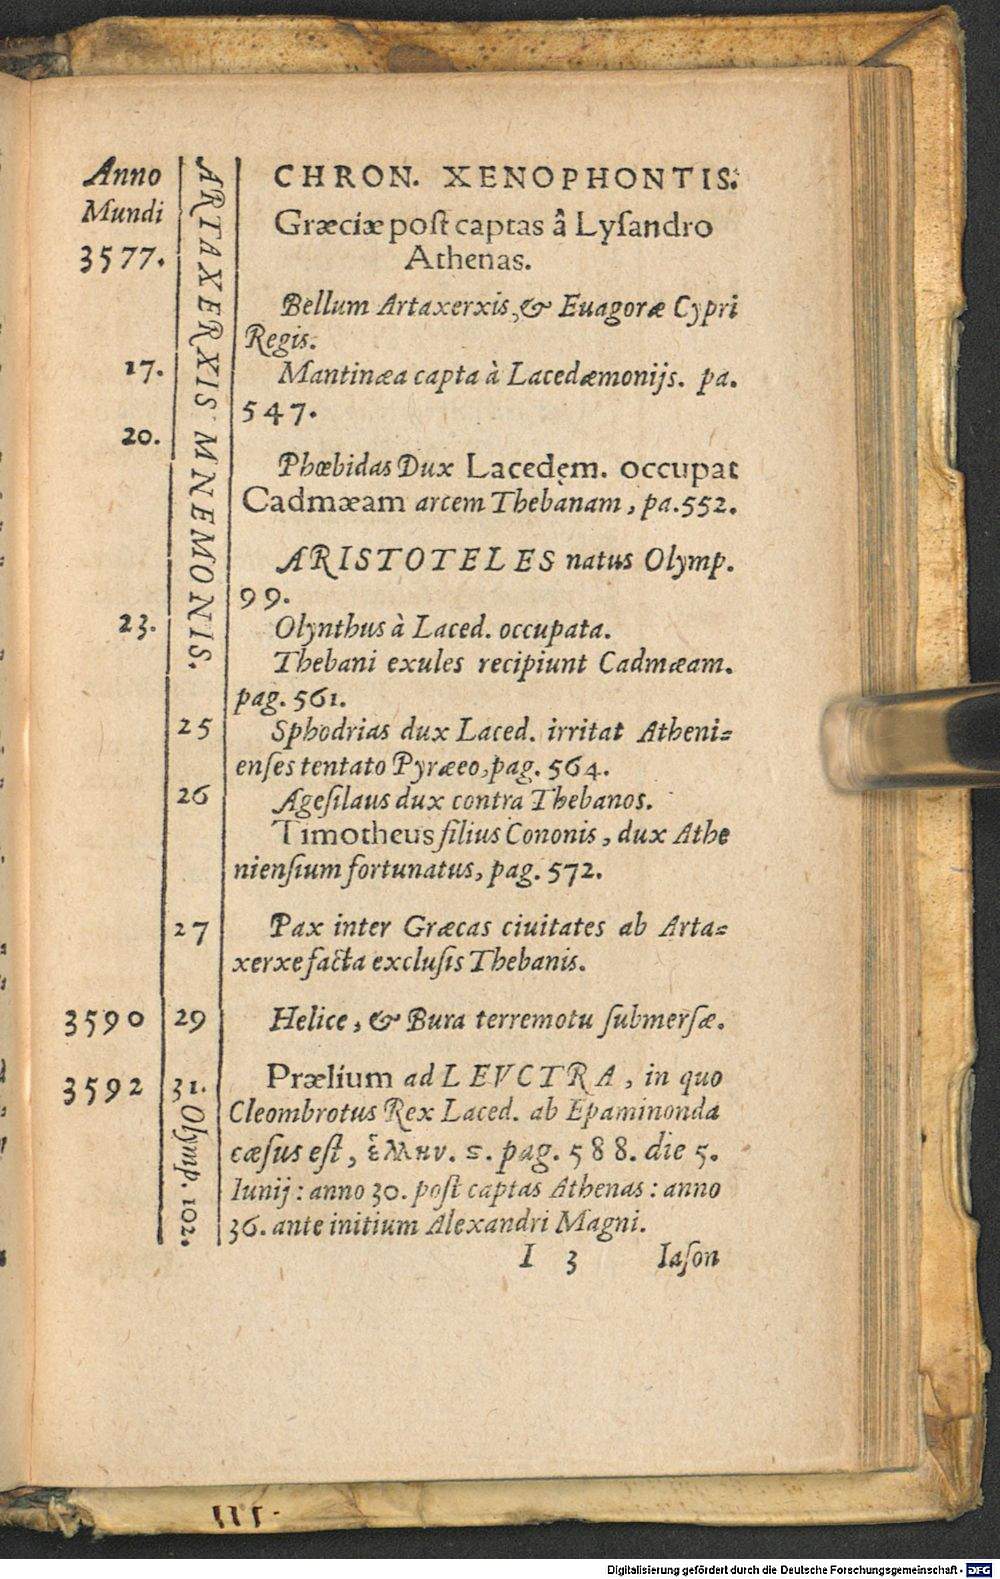 Anno
Mundi
3577.
ARTAXERXIS MNEMONIS.
CHRON. XENOPHONTIS.
Græciæ post captas â Lysandro
Athenas.
Bellum Artaxerxis, & Euagoræ Cypri
Regis.
17. Mantinæa capta à Lacedæmonijs. pa.
547.
20.
Phœbidas Dux Lacedęm. occupat
Cadmæam arcem Thebanam, pa. 552.
ARISTOTELES natus Olymp.
99.
23. Olynthus à Laced. occupata.
Thebani exules recipiunt Cadmæam.
pag. 561.
25 Sphodrias dux Laced. irritat Atheni=
enses tentato Pyræeo, pag. 564.
26 Agesilaus dux contra Thebanos.
Timotheus filius Cononis, dux Athe
niensium fortunatus, pag. 572.
27 Pax inter Græcas ciuitates ab Arta=
xerxe facta exclusis Thebanis.
3590 29 Helice, & Bura terremotu submersæ.
3592 31. Prælium ad LEVCTRA, in quo
Olymp. 102.
Cleombrotus Rex Laced. ab Epaminonda
cæsus est, ἑλλην. ϛ. pag. 588. die 5.
Iunij: anno 30. post captas Athenas: anno
36. ante initium Alexandri Magni.
I 3 Iason
Digitalisierung gefördert durch die Deutsche Forschungsgemeinschaft - DFG